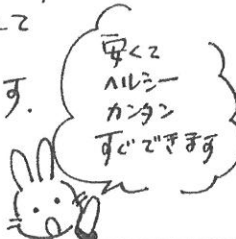 して
す.
安くて
ヘルシー
カンタン
すぐできます